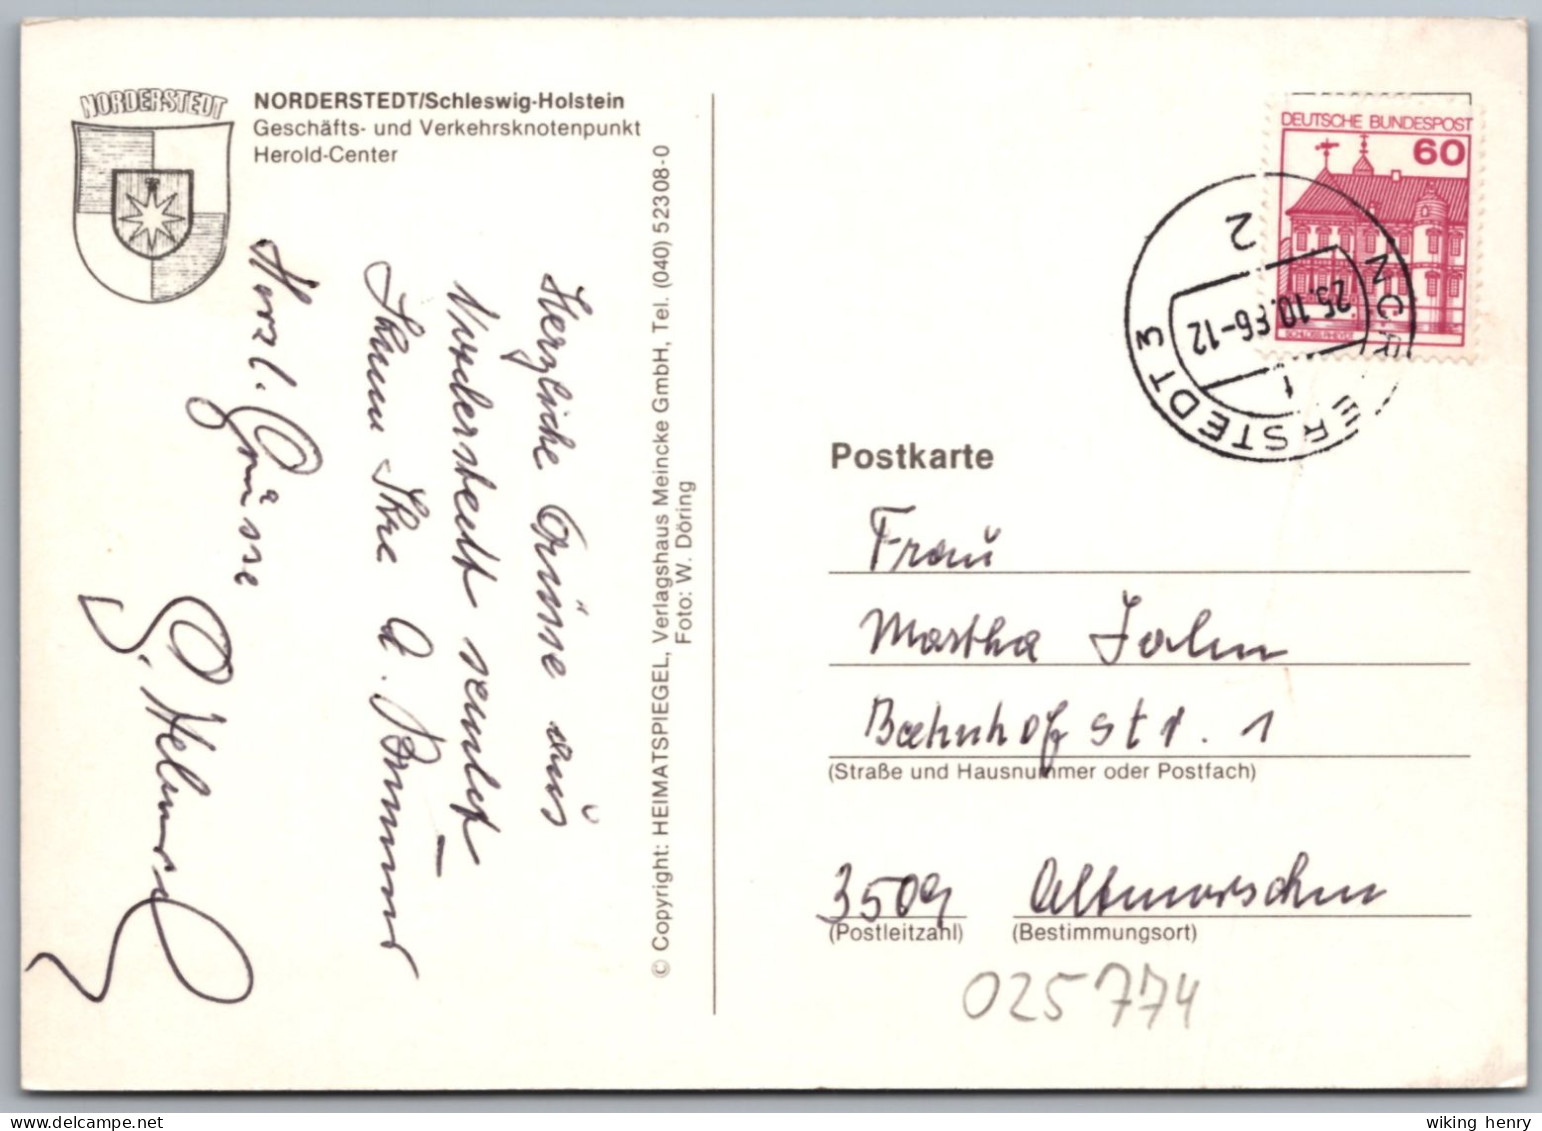 NORDERSTEDT
NORDERSTEDT/Schleswig-Holstein
Geschäfts- und Verkehrsknotenpunkt
Herold-Center
Herzliche Grüsse aus
Norderstedt sendet
Ihnen Ihre A.
Herzl. Grüsse
© Copyright: HEIMATSPIEGEL, Verlagshaus Meincke GmbH, Tel. (040) 5 23 08-0
Foto: W. Döring
DEUTSCHE BUNDESPOST
60
SCHLOSS RHEYDT
NORDERSTEDT 3
25.10.86-12
2
Postkarte
Frau
Martha Jahn
Bahnhofstr. 1
(Straße und Hausnummer oder Postfach)
3509 Altmorschen
(Postleitzahl) (Bestimmungsort)
025774
wiking henry